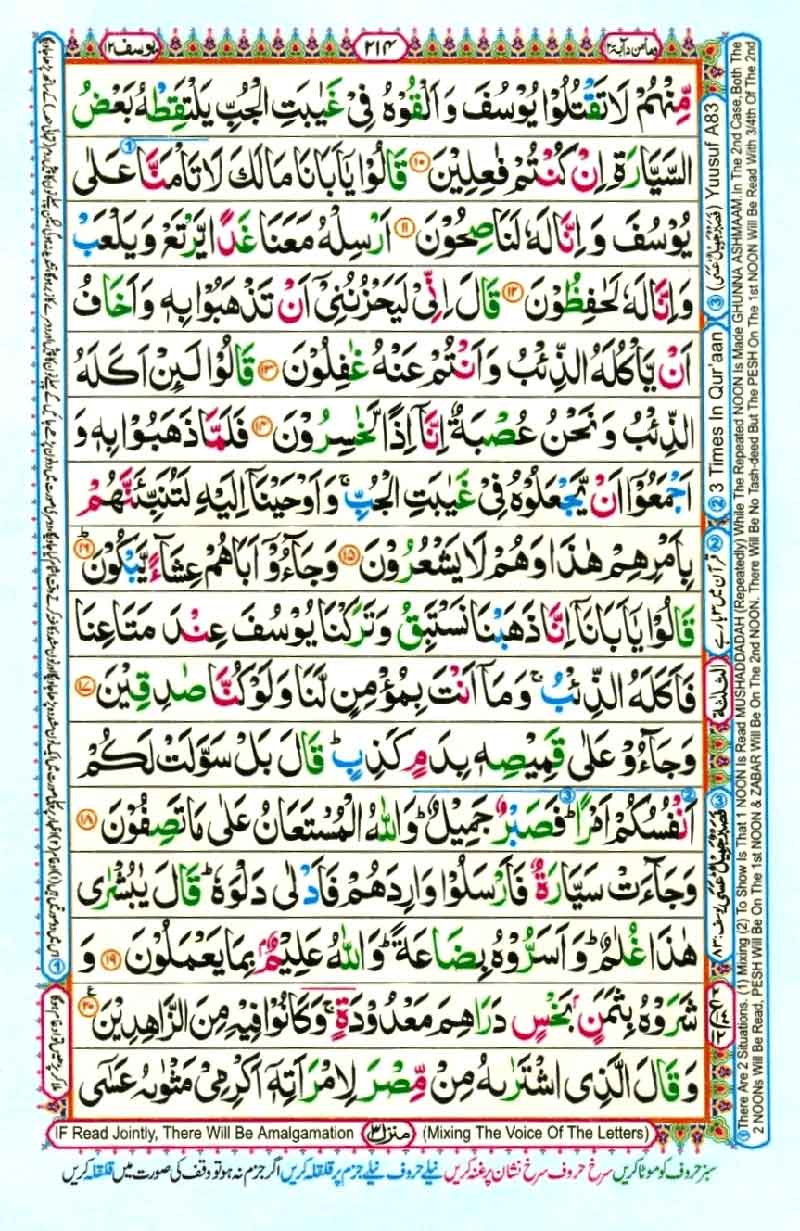 یوسف ۱۲
۲۱۴
ومامن دآبة ۱۲
مِّنْهُمْ لَا تَقْتُلُوْا یُوْسُفَ وَاَلْقُوْهُ فِیْ غَیٰبَتِ الْجُبِّ یَلْتَقِطْهُ بَعْضُ
السَّیَّارَةِ اِنْ كُنْتُمْ فٰعِلِیْنَ ۱۰ قَالُوْا یٰۤاَبَانَا مَالَكَ لَا تَاْمَنَّا عَلٰی
یُوْسُفَ وَاِنَّا لَهٗ لَنٰصِحُوْنَ ۱۱ اَرْسِلْهُ مَعَنَا غَدًا یَّرْتَعْ وَیَلْعَبْ
وَاِنَّا لَهٗ لَحٰفِظُوْنَ ۱۲ قَالَ اِنِّیْ لَیَحْزُنُنِیْۤ اَنْ تَذْهَبُوْا بِهٖ وَاَخَافُ
اَنْ یَّاْكُلَهُ الذِّئْبُ وَاَنْتُمْ عَنْهُ غٰفِلُوْنَ ۱۳ قَالُوْا لَىِٕنْ اَكَلَهُ
الذِّئْبُ وَنَحْنُ عُصْبَةٌ اِنَّاۤ اِذًا لَّخٰسِرُوْنَ ۱۴ فَلَمَّا ذَهَبُوْا بِهٖ وَ
اَجْمَعُوْۤا اَنْ یَّجْعَلُوْهُ فِیْ غَیٰبَتِ الْجُبِّ ۚ وَاَوْحَیْنَاۤ اِلَیْهِ لَتُنَبِّئَنَّهُمْ
بِاَمْرِهِمْ هٰذَا وَهُمْ لَا یَشْعُرُوْنَ ۱۵ وَجَآءُوْۤ اَبَاهُمْ عِشَآءً یَّبْكُوْنَ ۱۶
قَالُوْا یٰۤاَبَانَاۤ اِنَّا ذَهَبْنَا نَسْتَبِقُ وَتَرَكْنَا یُوْسُفَ عِنْدَ مَتَاعِنَا
فَاَكَلَهُ الذِّئْبُ ۚ وَمَاۤ اَنْتَ بِمُؤْمِنٍ لَّنَا وَلَوْ كُنَّا صٰدِقِیْنَ ۱۷
وَجَآءُوْ عَلٰی قَمِیْصِهٖ بِدَمٍ كَذِبٍ ؕ قَالَ بَلْ سَوَّلَتْ لَكُمْ
اَنْفُسُكُمْ اَمْرًا ؕ فَصَبْرٌ جَمِیْلٌ ؕ وَاللّٰهُ الْمُسْتَعَانُ عَلٰی مَا تَصِفُوْنَ ۱۸
وَجَآءَتْ سَیَّارَةٌ فَاَرْسَلُوْا وَارِدَهُمْ فَاَدْلٰی دَلْوَهٗ ؕ قَالَ یٰبُشْرٰی
هٰذَا غُلٰمٌ ؕ وَاَسَرُّوْهُ بِضَاعَةً ؕ وَاللّٰهُ عَلِیْمٌۢ بِمَا یَعْمَلُوْنَ ۱۹ وَ
شَرَوْهُ بِثَمَنٍۭ بَخْسٍ دَرَاهِمَ مَعْدُوْدَةٍ ۚ وَكَانُوْا فِیْهِ مِنَ الزَّاهِدِیْنَ ۲۰
وَقَالَ الَّذِی اشْتَرٰىهُ مِنْ مِّصْرَ لِامْرَاَتِهٖۤ اَكْرِمِیْ مَثْوٰىهُ عَسٰۤی
IF Read Jointly, There Will Be Amalgamation منزل ۳ (Mixing The Voice Of The Letters)
سبز حروف کو موٹا کریں سرخ حروف سرخ نشان پر غنہ کریں نیلے حروف نیلے جزم پر قلقلہ کریں اگر جزم نہ ہو تو وقف کی صورت میں قلقلہ کریں
② 3 Times In Qur'aan ③ (فَصَبْرٌ جَمِیْلٌ عَسَی) Yuusuf A83
① There Are 2 Situations. (1) Mixing (2) To Show Is That 1 NOON Is Read MUSHADDADAH (Repeatedly) While The Repeated NOON Is Made GHUNNA ASHMAAM.In The 2nd Case, Both The
2 NOONs Will Be Read, PESH Will Be On The 1st NOON & ZABAR Will Be On The 2nd NOON, There Will Be No Tash-deed But The PESH On The 1st NOON Will Be Read With 3/4th Of The 2nd